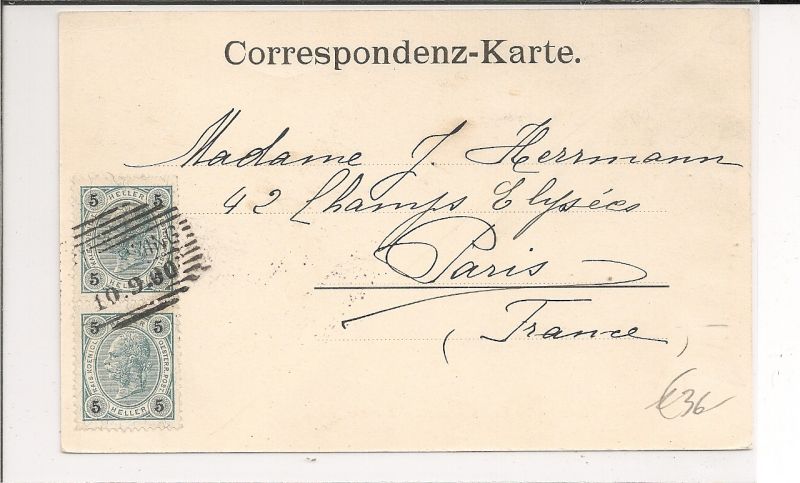 Correspondenz-Karte.
Madame J. Herrmann
42 Champs Elysées
Paris
(France)
5 HELLER 5
5 5
10.9.00
5 5
KAIS. KOENIGL. OESTERR. POST.
5 HELLER 5
€36